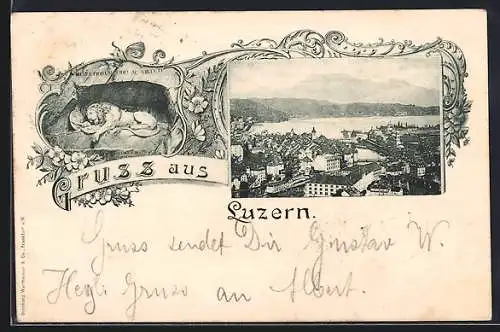 HELVETIORUM FIDEI AC VIRTUTI
Gruss aus
Luzern.
Gruss sendet Dir Gustav W.
Gruss an Albert.